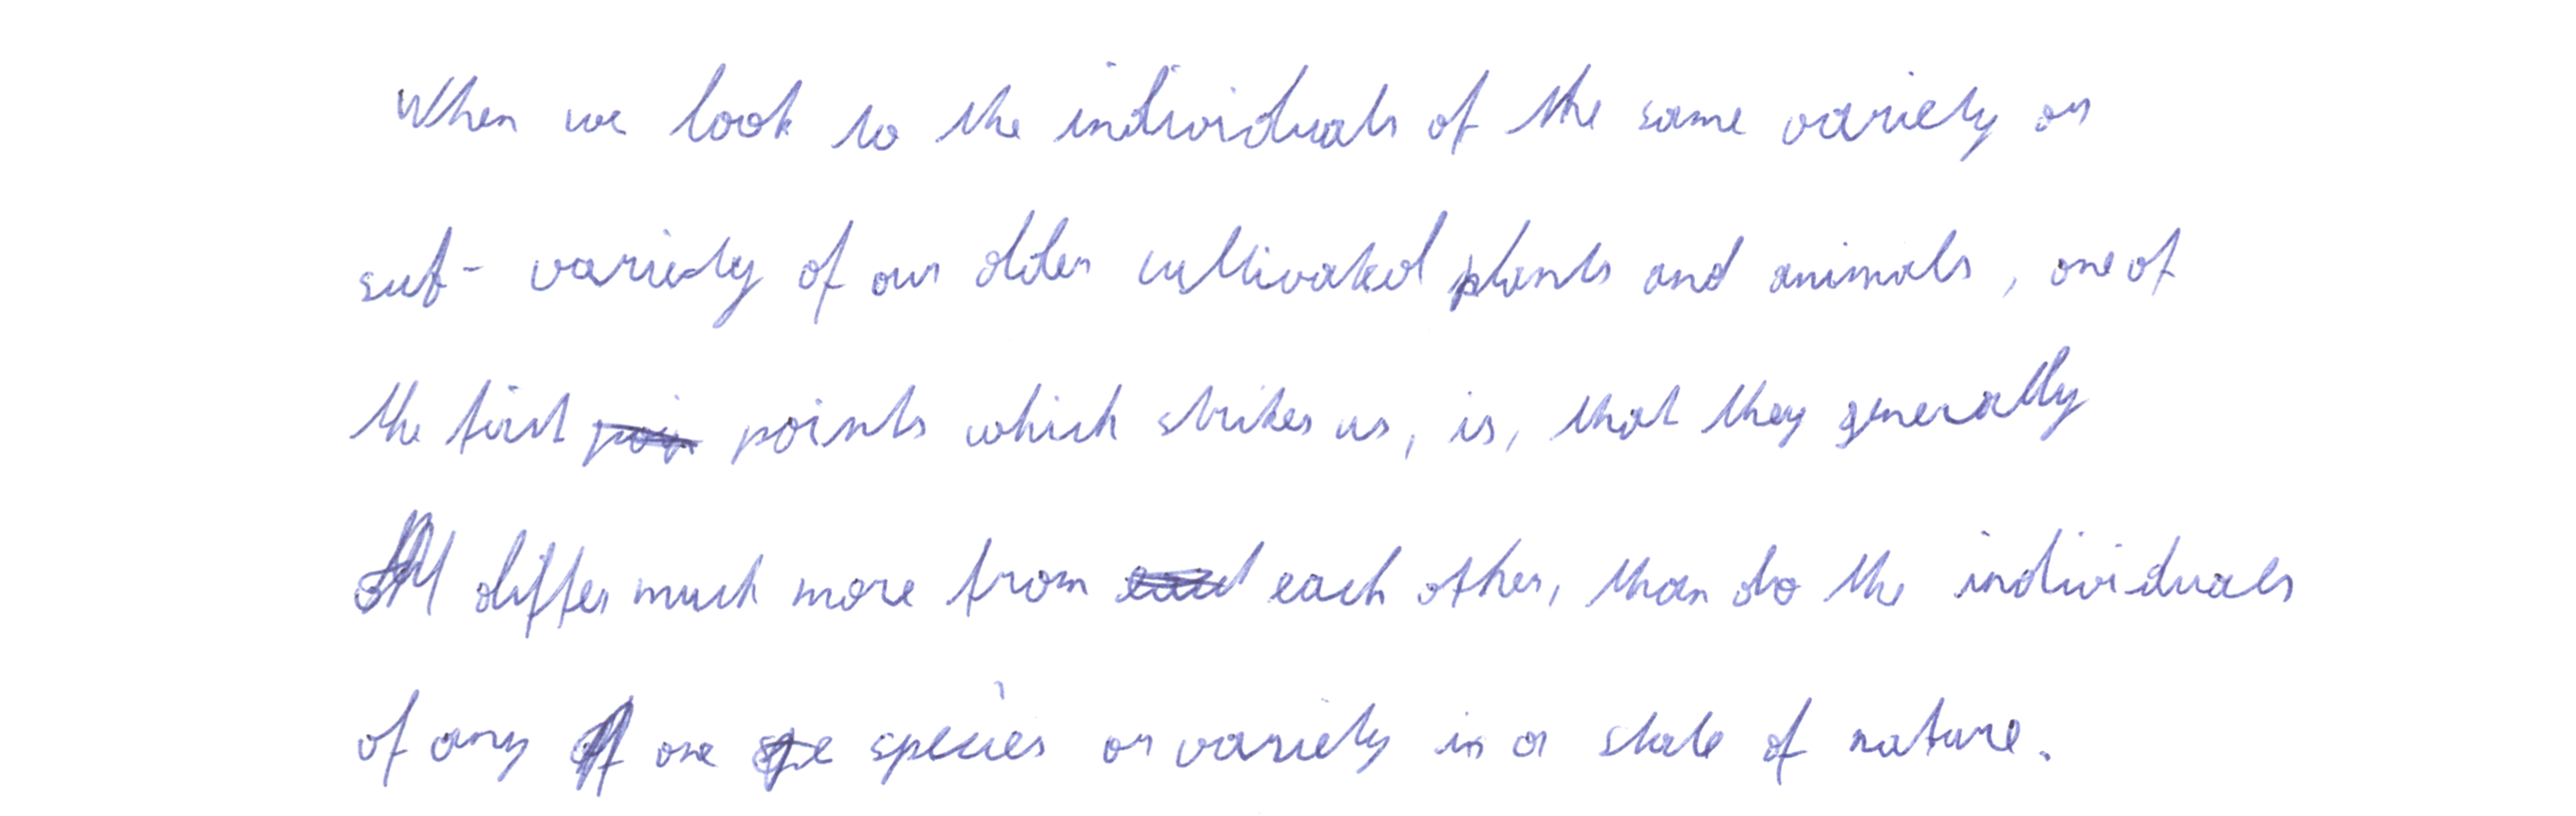 When we look to the individuals of the same variety or
sub-variety of our older cultivated plants and animals, one of
the first points which strikes us, is, that they generally
differ much more from each other, than do the individuals
of any one species or variety in a state of nature.